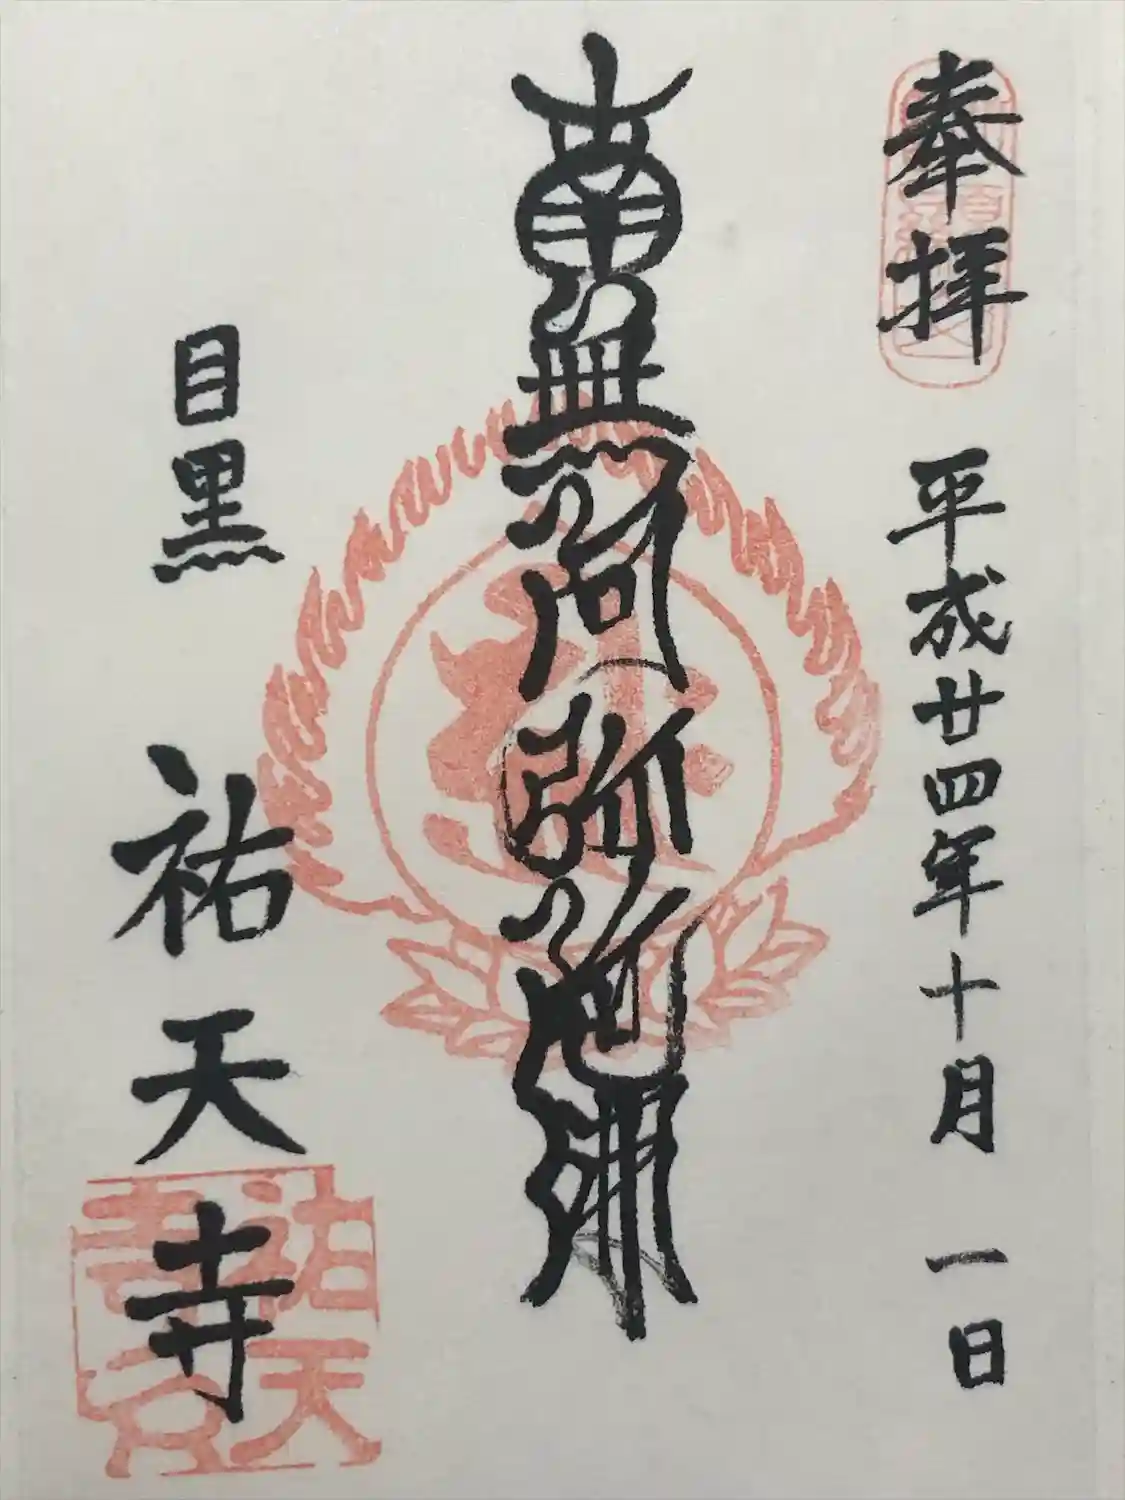 奉拝
平成廿四年十月一日
南無阿弥陀佛
目黒 祐天寺
祐天寺